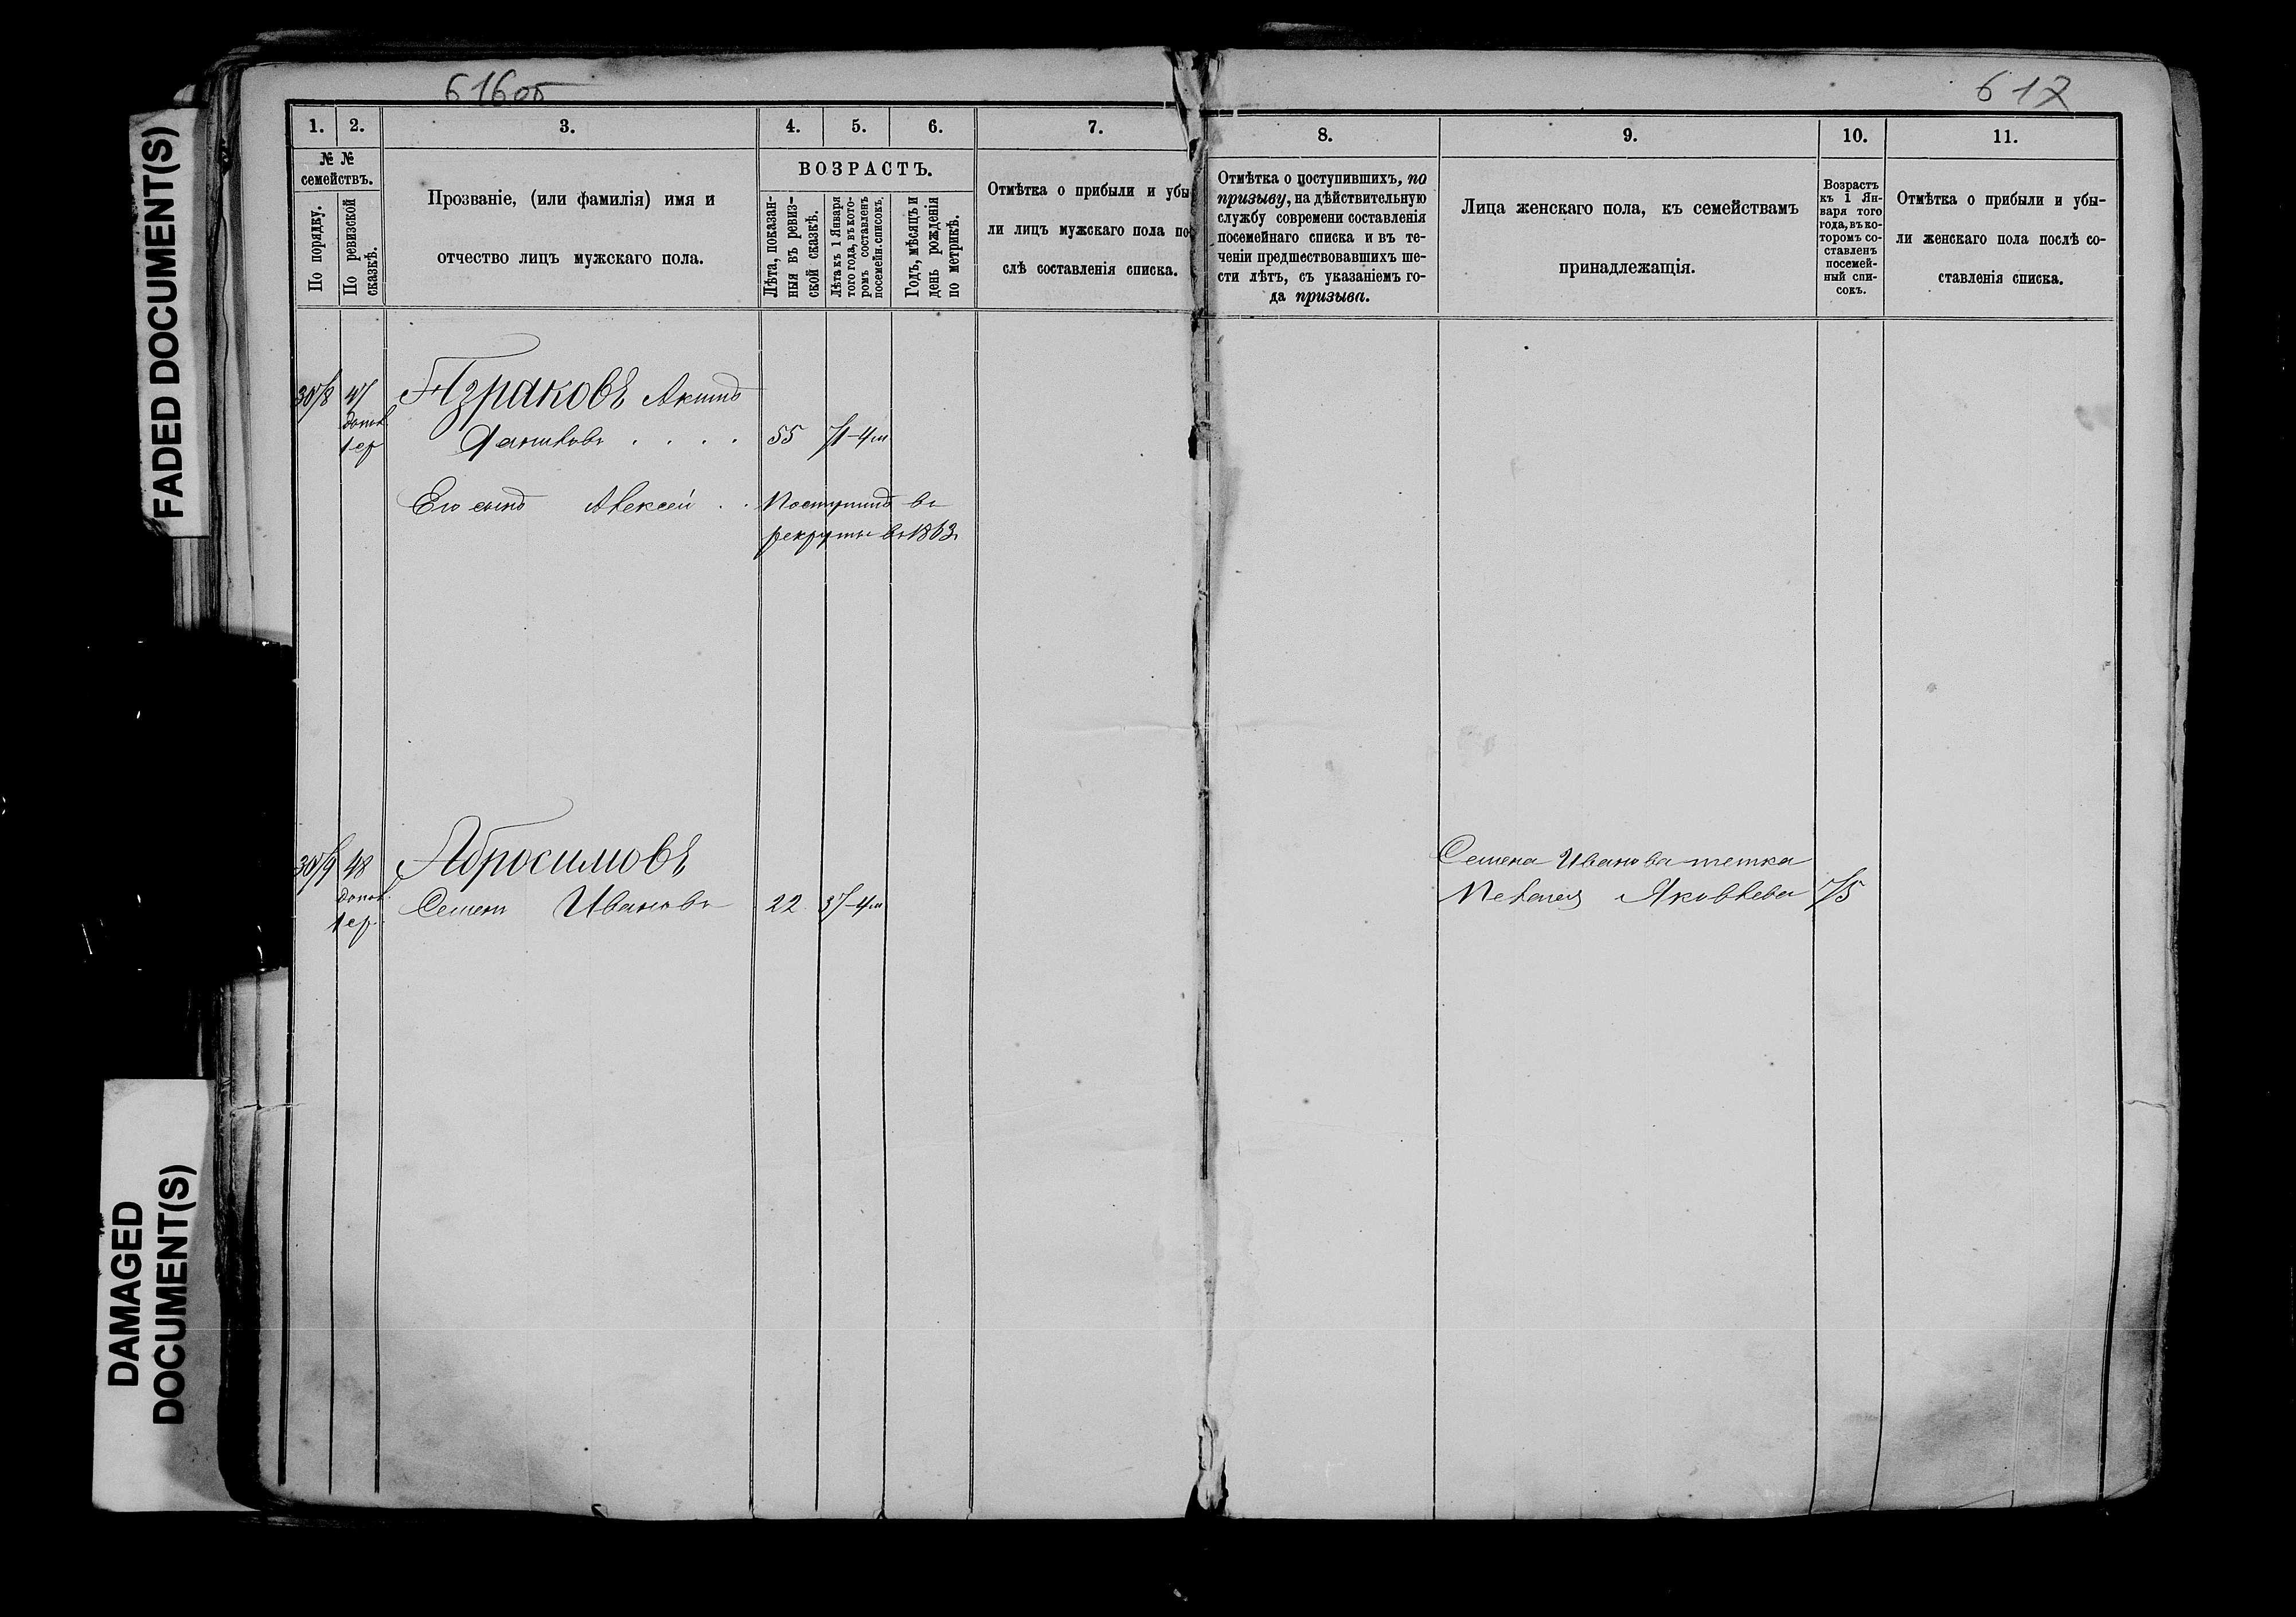 616об
617
FADED DOCUMENT(S)
DAMAGED
DOCUMENT(S)
1. 2. 3. 4. 5. 6. 7.
№ №
семействъ.
По порядку.
По ревизской
сказкѣ.
Прозваніе, (или фамилія) имя и
отчество лицъ мужскаго пола.
ВОЗРАСТЪ.
Лѣта, показан-
ныя въ ревиз-
ской сказкѣ.
Лѣта къ 1 Января
того года, въ кото-
ромъ составленъ
посемейн. списокъ.
Годъ, мѣсяцъ и
день рожденія
по метрикѣ.
Отмѣтка о прибыли и убы
ли лицъ мужскаго пола по
слѣ составленія списка.
8. 9. 10. 11.
Отмѣтка о поступившихъ, по
призыву, на дѣйствительную
службу современи составленія
посемейнаго списка и въ те-
ченіи предшествовавшихъ ше-
сти лѣтъ, съ указаніемъ го-
да призыва.
Лица женскаго пола, къ семействамъ
принадлежащія.
Возрастъ
къ 1 Ян-
варя того
года, въ ко-
торомъ со-
ставленъ
посемей-
ный спи-
сокъ.
Отмѣтка о прибыли и убы-
ли женскаго пола послѣ со-
ставленія списка.
47 Азраковъ Акимъ
допол.
1 ср 55 71-4м
Его сынъ Алексей . . Поступилъ въ
рекруты въ 1863
48 Абросимовъ
допол.
1 ср. Семенъ Ивановъ 22 37-4м
Семена Иванова тетка
Меланья Яковлева 75